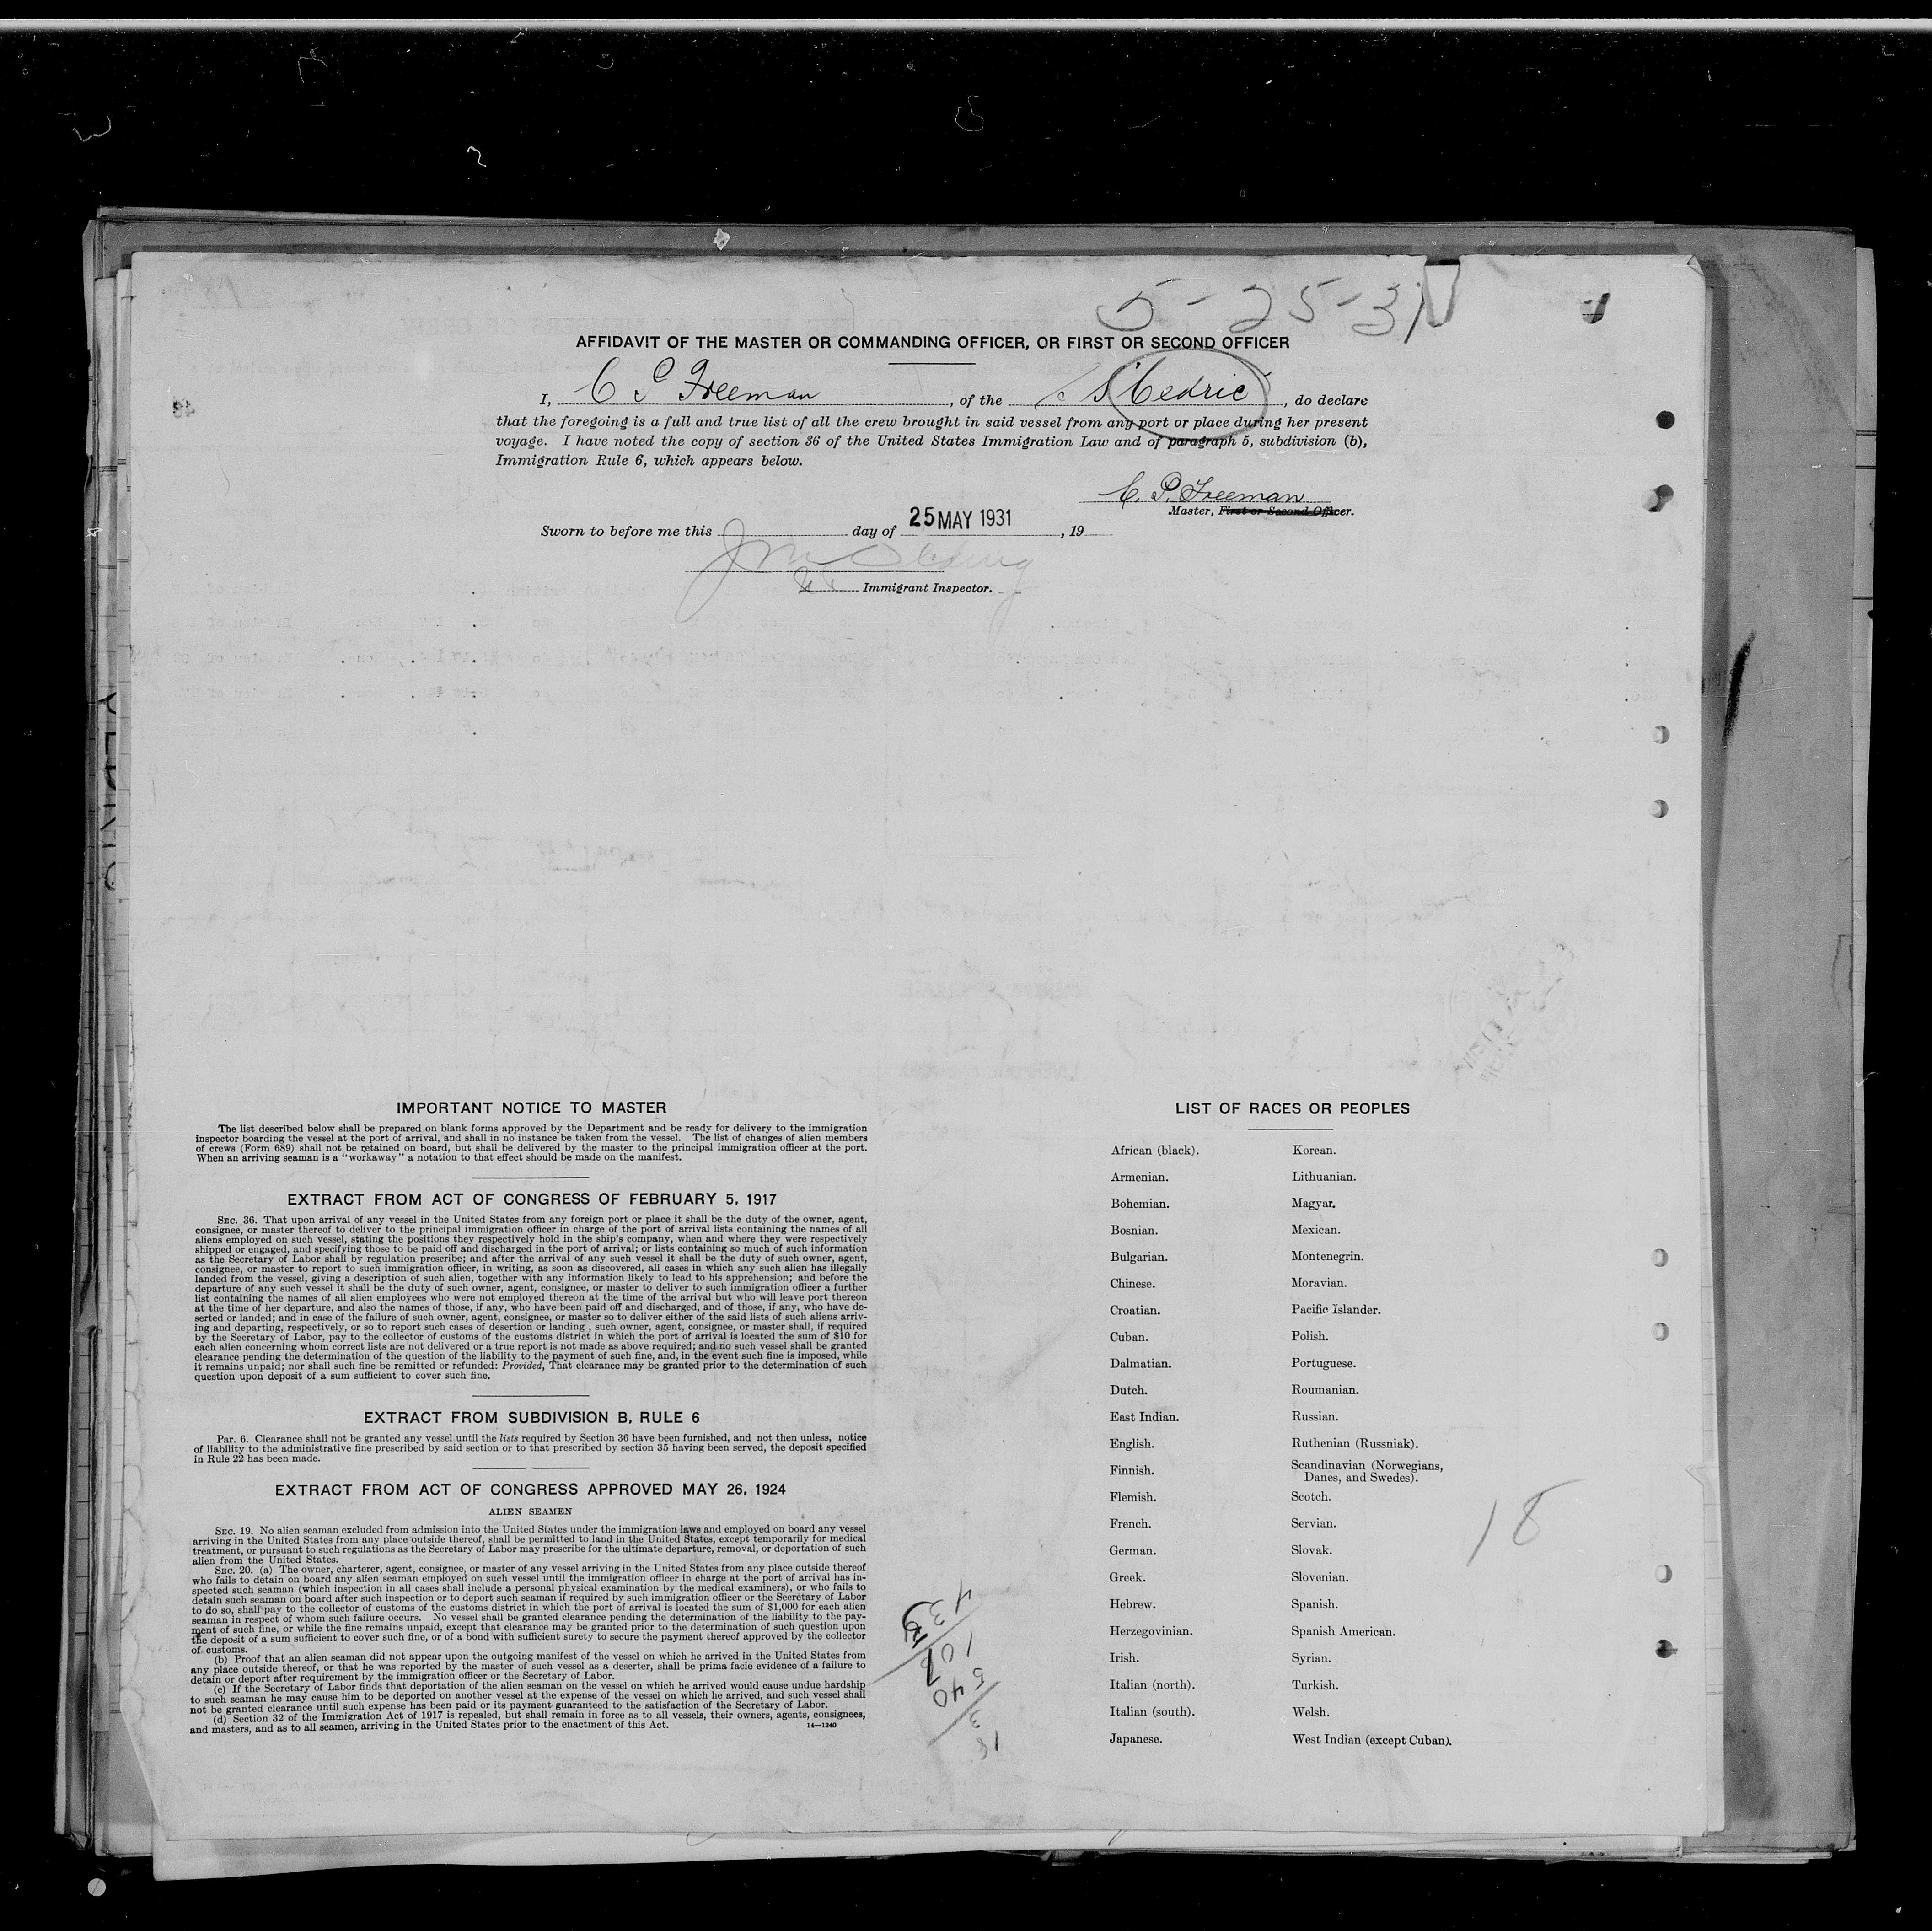 5-25-31
AFFIDAVIT OF THE MASTER OR COMMANDING OFFICER, OR FIRST OR SECOND OFFICER
I, C P Freeman, of the S S "Cedric", do declare
that the foregoing is a full and true list of all the crew brought in said vessel from any port or place during her present
voyage. I have noted the copy of section 36 of the United States Immigration Law and of paragraph 5, subdivision (b),
Immigration Rule 6, which appears below.
C. P. Freeman
Master, First or Second Officer.
Sworn to before me this day of 25 MAY 1931, 19
Immigrant Inspector.
IMPORTANT NOTICE TO MASTER
The list described below shall be prepared on blank forms approved by the Department and be ready for delivery to the immigration
inspector boarding the vessel at the port of arrival, and shall in no instance be taken from the vessel. The list of changes of alien members
of crews (Form 689) shall not be retained on board, but shall be delivered by the master to the principal immigration officer at the port.
When an arriving seaman is a "workaway" a notation to that effect should be made on the manifest.
EXTRACT FROM ACT OF CONGRESS OF FEBRUARY 5, 1917
SEC. 36. That upon arrival of any vessel in the United States from any foreign port or place it shall be the duty of the owner, agent,
consignee, or master thereof to deliver to the principal immigration officer in charge of the port of arrival lists containing the names of all
aliens employed on such vessel, stating the positions they respectively hold in the ship's company, when and where they were respectively
shipped or engaged, and specifying those to be paid off and discharged in the port of arrival; or lists containing so much of such information
as the Secretary of Labor shall by regulation prescribe; and after the arrival of any such vessel it shall be the duty of such owner, agent,
consignee, or master to report to such immigration officer, in writing, as soon as discovered, all cases in which any such alien has illegally
landed from the vessel, giving a description of such alien, together with any information likely to lead to his apprehension; and before the
departure of any such vessel it shall be the duty of such owner, agent, consignee, or master to deliver to such immigration officer a further
list containing the names of all alien employees who were not employed thereon at the time of the arrival but who will leave port thereon
at the time of her departure, and also the names of those, if any, who have been paid off and discharged, and of those, if any, who have de-
serted or landed; and in case of the failure of such owner, agent, consignee, or master so to deliver either of the said lists of such aliens arriv-
ing and departing, respectively, or so to report such cases of desertion or landing , such owner, agent, consignee, or master shall, if required
by the Secretary of Labor, pay to the collector of customs of the customs district in which the port of arrival is located the sum of $10 for
each alien concerning whom correct lists are not delivered or a true report is not made as above required; and no such vessel shall be granted
clearance pending the determination of the question of the liability to the payment of such fine, and, in the event such fine is imposed, while
it remains unpaid; nor shall such fine be remitted or refunded: Provided, That clearance may be granted prior to the determination of such
question upon deposit of a sum sufficient to cover such fine.
EXTRACT FROM SUBDIVISION B, RULE 6
Par. 6. Clearance shall not be granted any vessel until the lists required by Section 36 have been furnished, and not then unless, notice
of liability to the administrative fine prescribed by said section or to that prescribed by section 35 having been served, the deposit specified
in Rule 22 has been made.
EXTRACT FROM ACT OF CONGRESS APPROVED MAY 26, 1924
ALIEN SEAMEN
SEC. 19. No alien seaman excluded from admission into the United States under the immigration laws and employed on board any vessel
arriving in the United States from any place outside thereof, shall be permitted to land in the United States, except temporarily for medical
treatment, or pursuant to such regulations as the Secretary of Labor may prescribe for the ultimate departure, removal, or deportation of such
alien from the United States.
SEC. 20. (a) The owner, charterer, agent, consignee, or master of any vessel arriving in the United States from any place outside thereof
who fails to detain on board any alien seaman employed on such vessel until the immigration officer in charge at the port of arrival has in-
spected such seaman (which inspection in all cases shall include a personal physical examination by the medical examiners), or who fails to
detain such seaman on board after such inspection or to deport such seaman if required by such immigration officer or the Secretary of Labor
to do so, shall pay to the collector of customs of the customs district in which the port of arrival is located the sum of $1,000 for each alien
seaman in respect of whom such failure occurs. No vessel shall be granted clearance pending the determination of the liability to the pay-
ment of such fine, or while the fine remains unpaid, except that clearance may be granted prior to the determination of such question upon
the deposit of a sum sufficient to cover such fine, or of a bond with sufficient surety to secure the payment thereof approved by the collector
of customs.
(b) Proof that an alien seaman did not appear upon the outgoing manifest of the vessel on which he arrived in the United States from
any place outside thereof, or that he was reported by the master of such vessel as a deserter, shall be prima facie evidence of a failure to
detain or deport after requirement by the immigration officer or the Secretary of Labor.
(c) If the Secretary of Labor finds that deportation of the alien seaman on the vessel on which he arrived would cause undue hardship
to such seaman he may cause him to be deported on another vessel at the expense of the vessel on which he arrived, and such vessel shall
not be granted clearance until such expense has been paid or its payment guaranteed to the satisfaction of the Secretary of Labor.
(d) Section 32 of the Immigration Act of 1917 is repealed, but shall remain in force as to all vessels, their owners, agents, consignees,
and masters, and as to all seamen, arriving in the United States prior to the enactment of this Act.
14—1240
LIST OF RACES OR PEOPLES
African (black).
Armenian.
Bohemian.
Bosnian.
Bulgarian.
Chinese.
Croatian.
Cuban.
Dalmatian.
Dutch.
East Indian.
English.
Finnish.
Flemish.
French.
German.
Greek.
Hebrew.
Herzegovinian.
Irish.
Italian (north).
Italian (south).
Japanese.
Korean.
Lithuanian.
Magyar.
Mexican.
Montenegrin.
Moravian.
Pacific Islander.
Polish.
Portuguese.
Roumanian.
Russian.
Ruthenian (Russniak).
Scandinavian (Norwegians,
Danes, and Swedes).
Scotch.
Servian.
Slovak.
Slovenian.
Spanish.
Spanish American.
Syrian.
Turkish.
Welsh.
West Indian (except Cuban).
18